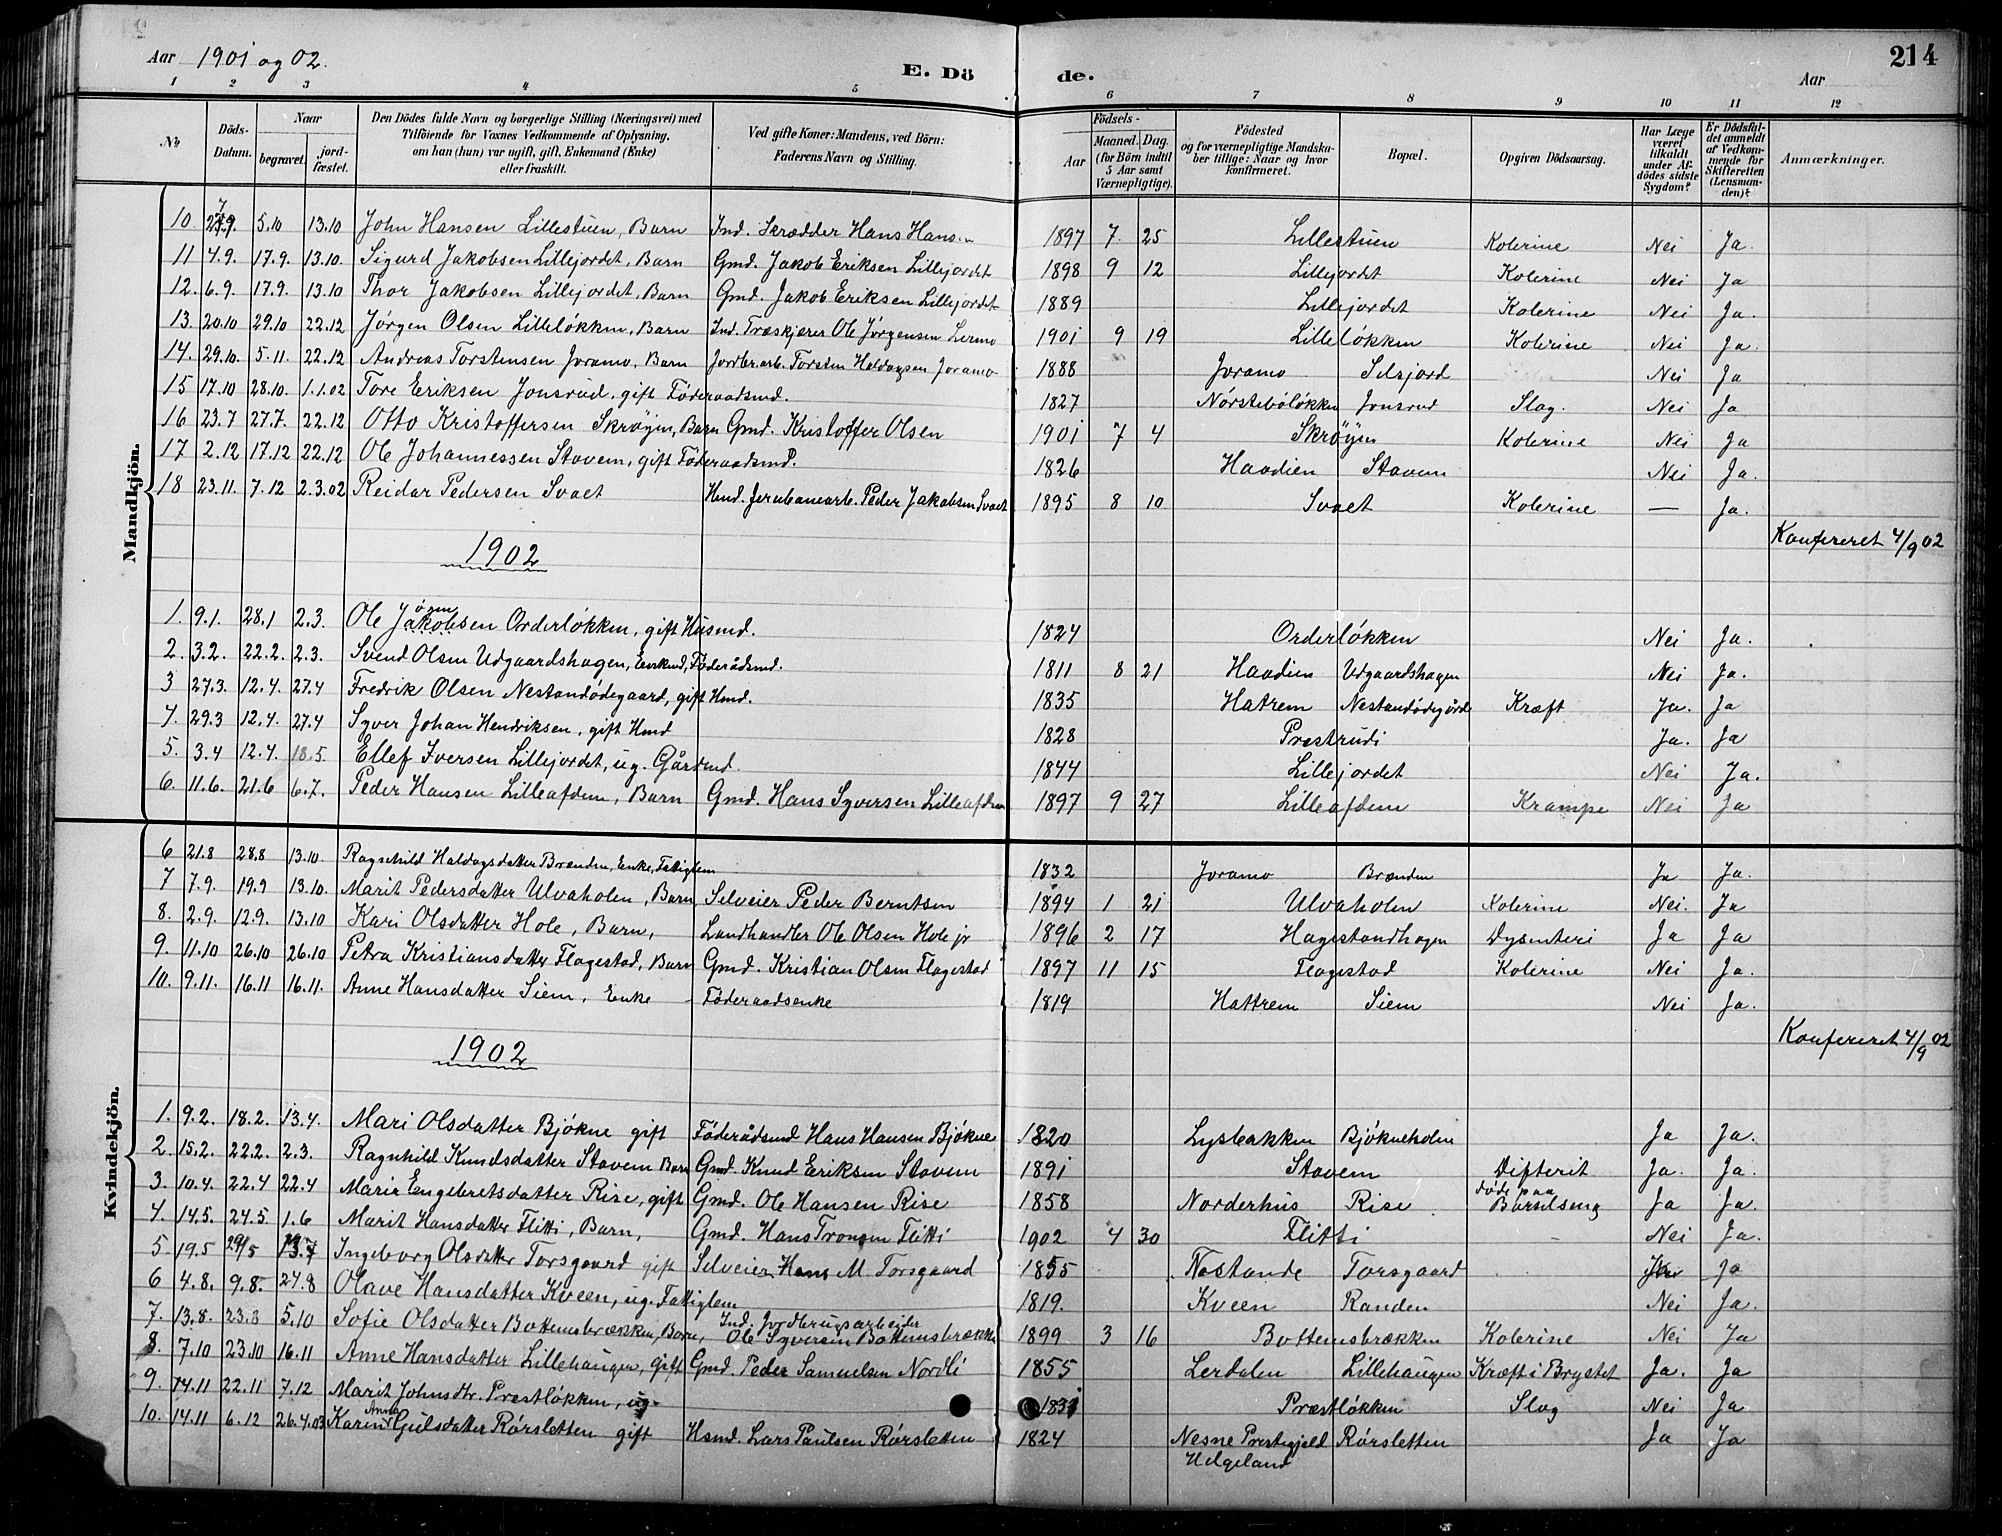 Aar 1901 og 02.
E. Dö de.
Aar
214
1 2 3 4 5 6 7 8 9 10 11 12
No
Döds-Datum.
Naar
begravet.
jord-fæstet.
Den Dödes fulde Navn og borgerlige Stilling (Næringsvei) med
Tilföiende for Voxnes Vedkommende af Oplysning,
om han (hun) var ugift, gift, Enkemand (Enke)
eller fraskilt.
Ved gifte Koner: Mandens, ved Börn:
Faderens Navn og Stilling.
Födsels-
Aar
Maaned. Dag.
(for Börn indtil
5 Aar samt
Værnepligtige).
Födested
og for værnepligtige Mandska-
ber tillige: Naar og hvor
konfirmeret.
Bopæl.
Opgiven Dödsaarsag.
Har Læge
været
tilkaldt
under Af-
dödes sidste
Sygdom?
Er Dödsfal-
det anmeldt
af Vedkom-
mende for
Skifteretten
(Lensman-
den)?
Anmærkninger.
Mandkjön.
10. 27.9. 5.10 13.10 John Hansen Lillestuen, Barn Ind. Skrædder Hans Hansen 1897 7. 25 Lillestuen Kolerine Nei Ja.
11 4.9. 17.9. 13.10. Sigurd Jakobsen Lillejordet, Barn Gmd. Jakob Eriksen Lillejordet 1898 9 12 Lillejordet Kolerine Nei Ja
12. 6.9. 17.9. 13.10 Thor Jakobsen Lillejordet, Barn Gmd. Jakob Eriksen Lillejordet 1889 Lillejordet Kolerine Nei Ja.
13. 20.10 29.10 22.12 Jörgen Olsen Lilleløkken, Barn Ind. Træskjærer Ole Jörgensen Lermo 1901 9 19 Lilleløkken Kolerine Nei Ja.
14. 29.10. 5.11. 22.12 Andreas Torstensen Joramo, Barn Jordbr.arb. Torsten Haldogsen Joramo 1888 Joramo Selsjord Nei Ja
15 17.10 28.10. 1.1.02 Tore Eriksen Jonsrud, gift Föderaadsmd. 1827 Nørsteböløkken Jonsrud Slag. Nei Ja
16 23.7 27.7. 22.12 Otto Kristoffersen Skrøyen, Barn Gmd. Kristoffer Olsen 1901 7 4 Skrøyen Kolerine Nei Ja
17 2.12 17.12 22.12 Ole Johannessen Stavem, gift Föderaadsmd. 1826 Haadien Stavem Nei Ja.
18 23.11. 7.12 2.3.02 Reidar Pedersen Svaet Hmd. Jernbanearb. Peder Jakobsen Svaet 1895 8 10 Svaet Kolerine — Ja.
Konfereret 4/9 02
1902
1. 9.1. 28.1 2.3. Ole Jakobsen Orderløkken, gift Husmd. 1824 Orderløkken Nei Ja.
2. 3.2. 22.2. 2.3. Svend Olsen Udgaardshagen, Enkmd, Föderådsmd. 1811 8 21 Haadien Udgaardshagen Nei Ja.
3 27.3. 12.4. 27.4 Fredrik Olsen Nestandødegaard, gift Hmd. 1835 Hatrem Nestandødegårde Kræft Ja. Ja
4. 29.3 12.4. 27.4 Syver Johan Hendriksen, gift Hmd 1828 Prestrudi Ja. Ja
5. 3.4 12.4. 18.5. Ellef Iversen Lillejordet, ug. Gårdmd. 1844 Lillejordet Nei Ja.
6. 11.6. 21.6 6.7. Peder Hansen Lilleafdem, Barn Gmd. Hans Syversen Lilleafdem 1897 9 27 Lilleafdem Krampe Nei Ja
Kvindekjön.
6 21.8 28.8 13.10. Ragnhild Haldogsdatter Brænden, Enke, Fattiglem 1832 Joramo Brænden Ja Ja.
7 7.9. 19.9 13.10. Marit Pedersdatter Ulvaholen, Barn Selveier Peder Berntsen 1894 1 21 Ulvaholen Kolerine Nei. Ja
8. 2.9. 12.9. 13.10 Kari Olsdatter Hole, Barn, Landhandler Ole Olsen Hole jr 1896 2 17 Hagestandhagen Dysenteri Ja Ja
9. 11.10 26.10 26.10 Petra Kristiansdatter Flagestad, Barn Gmd. Kristian Olsen Flagestad 1897 11 15 Flagestad Kolerine Nei Ja.
10. 9.11. 16.11 16.11. Anne Hansdatter Siem, Enke Föderaadsenke 1819 Hattrem Siem Nei Ja.
Konfereret 4/9 02
1902
1. 9.2. 18.2. 13.4. Mari Olsdatter Bjøkne gift Föderådsmd Hans Hansen Bjøkne 1820 Lysbakken Bjøkneholen Ja Ja.
2. 15.2. 22.2. 2.3. Ragnhild Knudsdatter Stavem Barn Gmd. Knud Eriksen Stavem 1891 Stavem Difterit Ja. Ja.
3. 10.4. 22.4 22.4 Marie Engebretsdatter Rise, gift Gmd. Ole Hansen Rise 1858 Norderhus Rise. døde paa Barselseng Ja Ja.
4. 14.5. 24.5. 1.6 Marit Hansdatter Flitti, Barn, Gmd. Hans Tronsen Flitti 1902 4 30 Flitti Nei Ja.
5 19.5 29/5 13.7 Ingeborg Olsdatter Torsgaard gift Selveier Hans M. Torsgaard 1855 Nostande Torsgaard Ja
6 4.8. 9.8. 24.8 Olave Hansdatter Kveen, ug. Fattiglem 1819. Kveen Randen Nei Ja.
7. 13.8. 23.8 5.10 Sofie Olsdatter Bottemsbrækken, Barn, Ind. Jordbrugsarbeider Ole Syversen Bottemsbrækken 1899 3 16 Bottemsbrækken Kolerine Nei Ja
8. 7.10 23.10 16.11 Anne Hansdatter Lillehaugen, gift Gmd. Peder Samuelsen Nordli 1855 Lerdalen Lillehaugen Kræft i Brystet Ja. Ja
9. 14.11 22.11 7.12 Marit Johnsdtr. Præstløkken, ug. 1831 Præstløkken Slag Nei Ja
10. 14.11 6.12 26.4.03 Karen Anna Gulsdatter Rørsletten gift Hsmd. Lars Paulsen Rørsletten 1824 Nesne Prestegjeld Helgeland Rørsletten Ja Ja